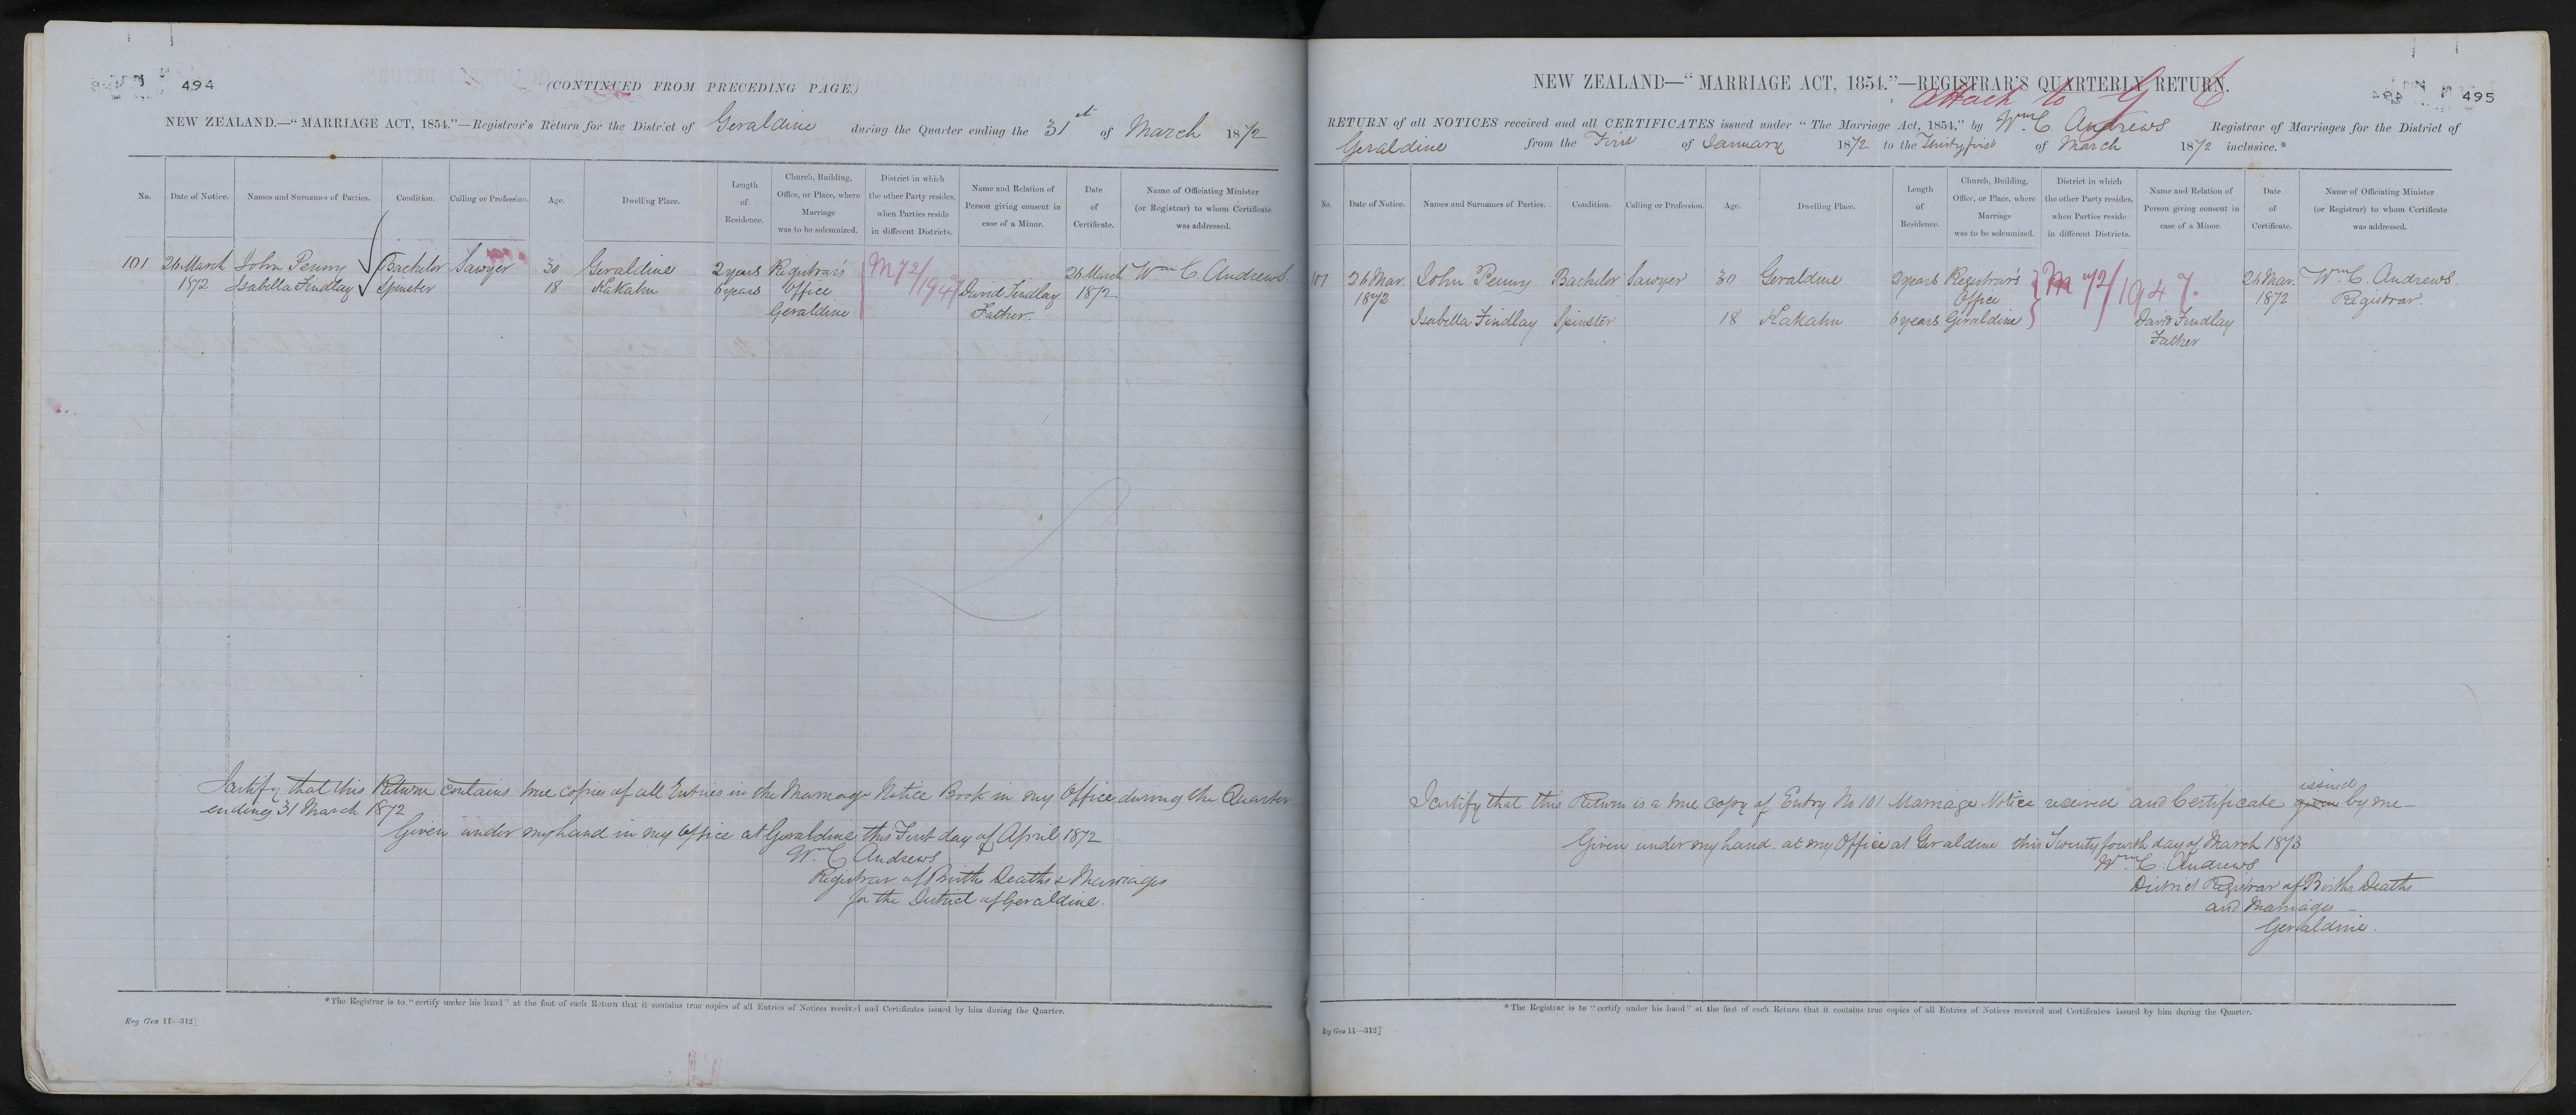 494
(CONTINUED FROM PRECEDING PAGE.)
NEW ZEALAND.—"MARRIAGE ACT, 1854."—Registrar's Return for the District of Geraldine during the Quarter ending the 31st of March 1872
No. Date of Notice. Names and Surnames of Parties. Condition. Calling or Profession. Age. Dwelling Place. Length of Residence. Church, Building, Office, or Place, where Marriage was to be solemnized. District in which the other Party resides, when Parties reside in different Districts. Name and Relation of Person giving consent in case of a Minor. Date of Certificate. Name of Officiating Minister (or Registrar) to whom Certificate was addressed.
101 26 March John Penny Bachelor Sawyer 30 Geraldine 2 years Registrar's M 72/1947 26 March Wm C. Andrews
1872 Isabella Findlay Spinster 18 Kakahu 6 years Office David Findlay 1872
Geraldine Father.
I certify that this Return contains true copies of all Entries in the Marriage Notice Book in my Office during the Quarter
ending 31 March 1872
Given under my hand in my Office at Geraldine this First day of April 1872
Wm C Andrews
Registrar of Births Deaths & Marriages
for the District of Geraldine.
*The Registrar is to "certify under his hand" at the foot of each Return that it contains true copies of all Entries of Notices received and Certificates issued by him during the Quarter.
Reg Gen 11—312]
495
NEW ZEALAND—"MARRIAGE ACT, 1854."—REGISTRAR'S QUARTERLY RETURN.
Attach to
RETURN of all NOTICES received and all CERTIFICATES issued under "The Marriage Act, 1854," by Wm C. Andrews Registrar of Marriages for the District of
Geraldine from the First of January 1872 to the Thirty first of March 1872 inclusive.*
No. Date of Notice. Names and Surnames of Parties. Condition. Calling or Profession. Age. Dwelling Place. Length of Residence. Church, Building, Office, or Place, where Marriage was to be solemnized. District in which the other Party resides, when Parties reside in different Districts. Name and Relation of Person giving consent in case of a Minor. Date of Certificate. Name of Officiating Minister (or Registrar) to whom Certificate was addressed.
101 26 Mar. John Penny Bachelor Sawyer 30 Geraldine 2 years Registrar's M 72/1947. 26 Mar. Wm C. Andrews.
1872 Office 1872 Registrar.
Isabella Findlay Spinster 18 Kakahu 6 years Geraldine David Findlay
Father
I certify that this Return is a true copy of Entry No 101 Marriage Notice received and Certificate given issued by me—
Given under my hand at my Office at Geraldine this Twenty fourth day of March 1873
Wm C. Andrews
District Registrar of Births Deaths
and Marriages—
Geraldine.
*The Registrar is to "certify under his hand" at the foot of each Return that it contains true copies of all Entries of Notices received and Certificates issued by him during the Quarter.
Reg Gen 11—312]